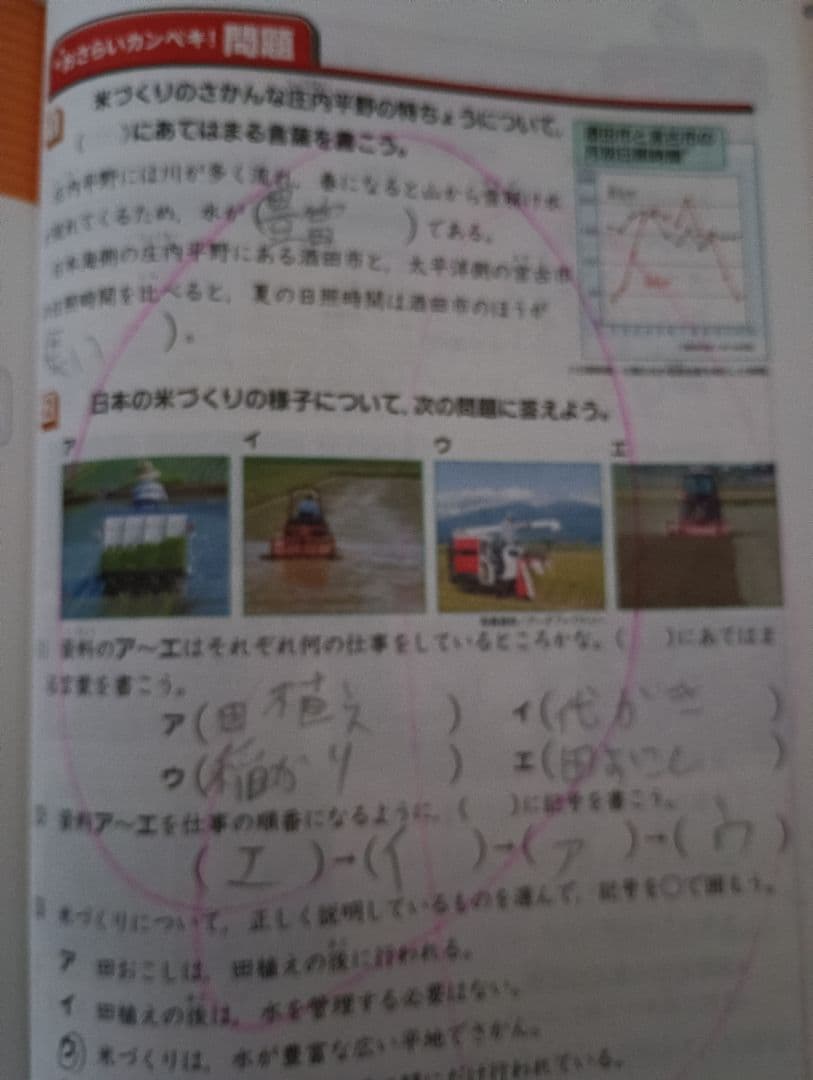 おさらいカンペキ! 問題
米づくりのさかんな庄内平野の特ちょうについて、
( )にあてはまる言葉を書こう。
内平野には川が多く流れ、春になると山から雪解け水
れてくるため、水が(豊富)である。
海側の庄内平野にある酒田市と、太平洋側の宮古市
日照時間を比べると、夏の日照時間は酒田市のほうが
長い)。
酒田市と宮古市の
月別日照時間
日本の米づくりの様子について、次の問題に答えよう。
ア イ ウ エ
資料のア〜エはそれぞれ何の仕事をしているところかな。( )にあてはま
る言葉を書こう。
ア(田植え) イ(代がき)
ウ(稲かり) エ(田おこし)
資料ア〜エを仕事の順番になるように、( )に記号を書こう。
(エ)→(イ)→(ア)→(ウ)
米づくりについて、正しく説明しているものを選んで、記号を○で囲もう。
ア 田おこしは、田植えの後に行われる。
イ 田植えの後は、水を管理する必要はない。
ウ 米づくりは、水が豊富な広い平地でさかん。
だけ行われている。